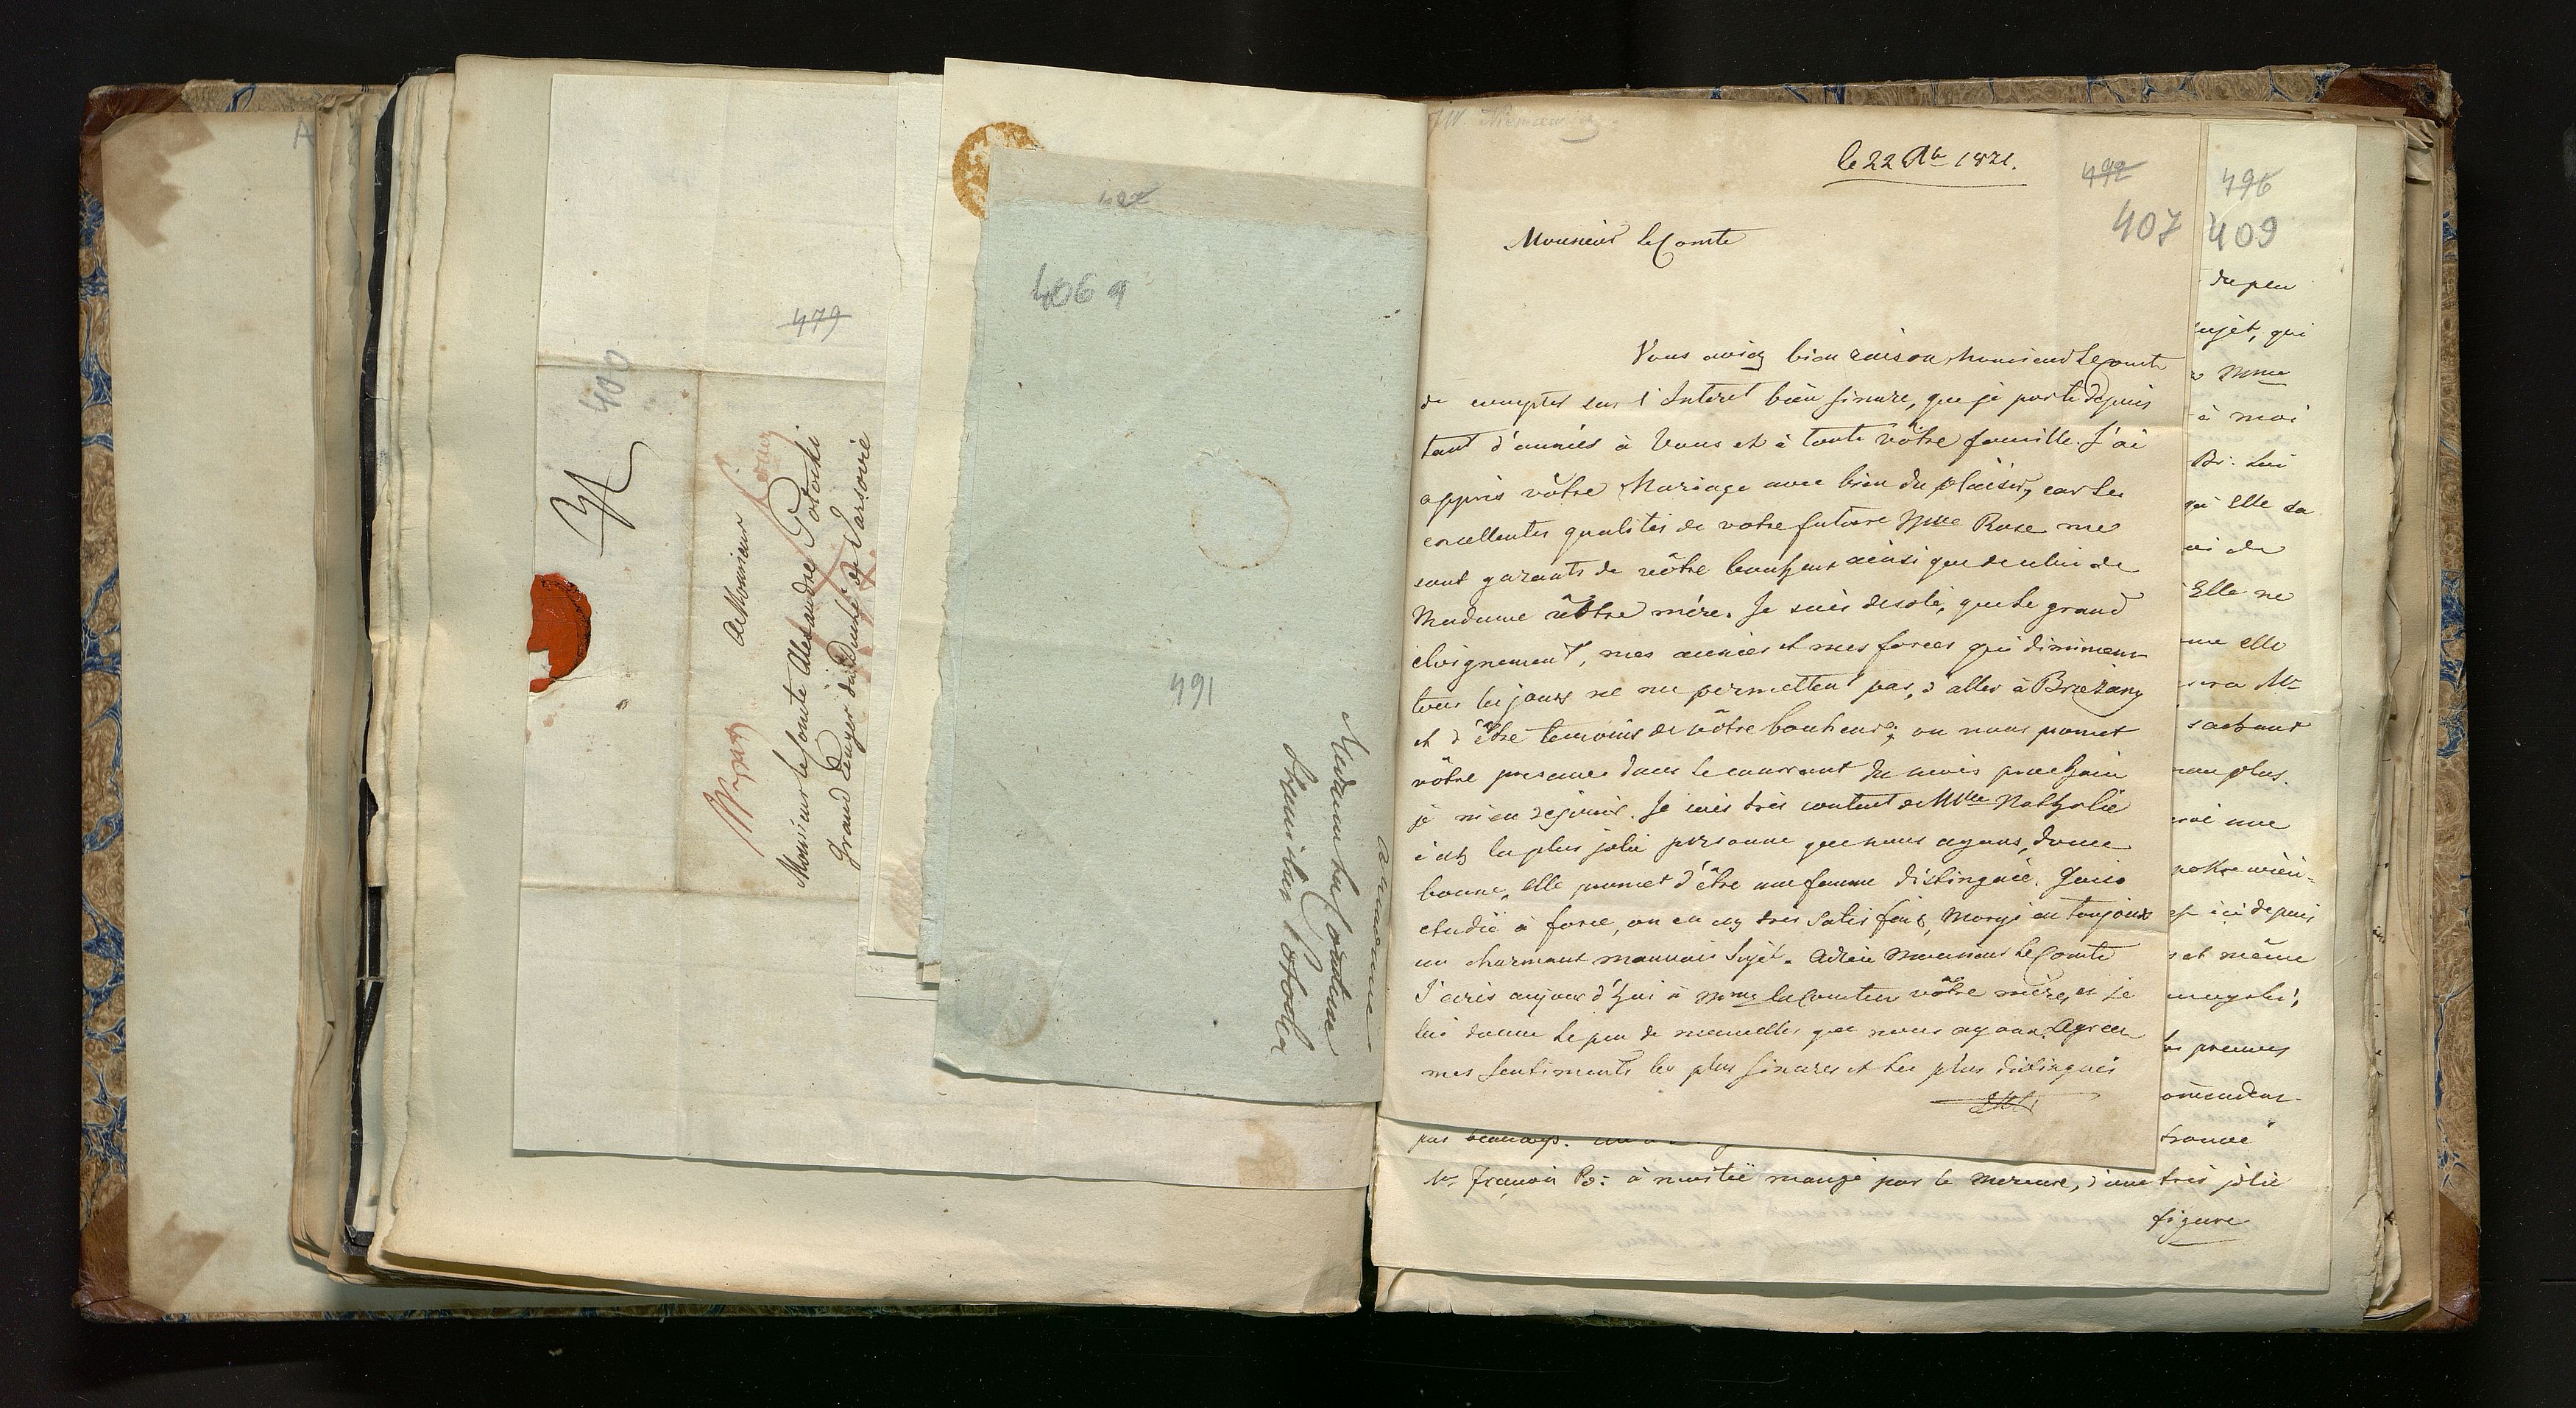 479
400
à Monsieur
Monsieur le Comte Alexandre Potocki
Grand Ecuyer du Duché de Varsovie
406 a
491
a Varsovie
Madame la Comtesse
Stanislas Potocka
le 22 1821.
492
407
Monsieur le Comte
Vous aviez bien raison Monsieur le Comte
de compter sur l'Interet bien sincere, que je porte depuis
tant d'années à Vous et à toute vôtre famille. J'ai
appris vôtre Mariage avec bien du plaisir, car les
excellentes qualités de votre future Mlle Rose me
sont garants de vôtre bonheur ainsi que de celui de
Madame vôtre mére. Je suis desolé, que le grand
eloignement, mes années et mes forces qui diminuent
tous les jours ne me permettent pas, d'aller à Brzezany
et d'être temoins de vôtre bonheur; on nous promet
vôtre presence dans le courrant du mois prochain
je m'en rejouis. Je suis très content de Mlle Nathalie
c'est la plus jolie personne que nous ayons, douce
bonne, elle promet d'être une femme distinguée.
etudie à force, on en est très satisfait, toujours
un charmant mauvais Sujet. Adieu Monsieur le Comte
J'ecris aujourd'hui à Mme la Comtesse vôtre mère, et je
lui donne le peu de nouvelles que nous ayons. Agreez
mes sentiments les plus sinceres et les plus distingués
496
409
du peu
sujet, qui
Mme
à moi
Br: lui
qu'elle sa
ai de
Elle ne
me elle
sera Mr
sachant
non plus.
une
ici depuis
et même
preuves
trouvé
pas beaucoup.
Mr François Po: à moitié mangé par le mercure, d'une très jolie
figure